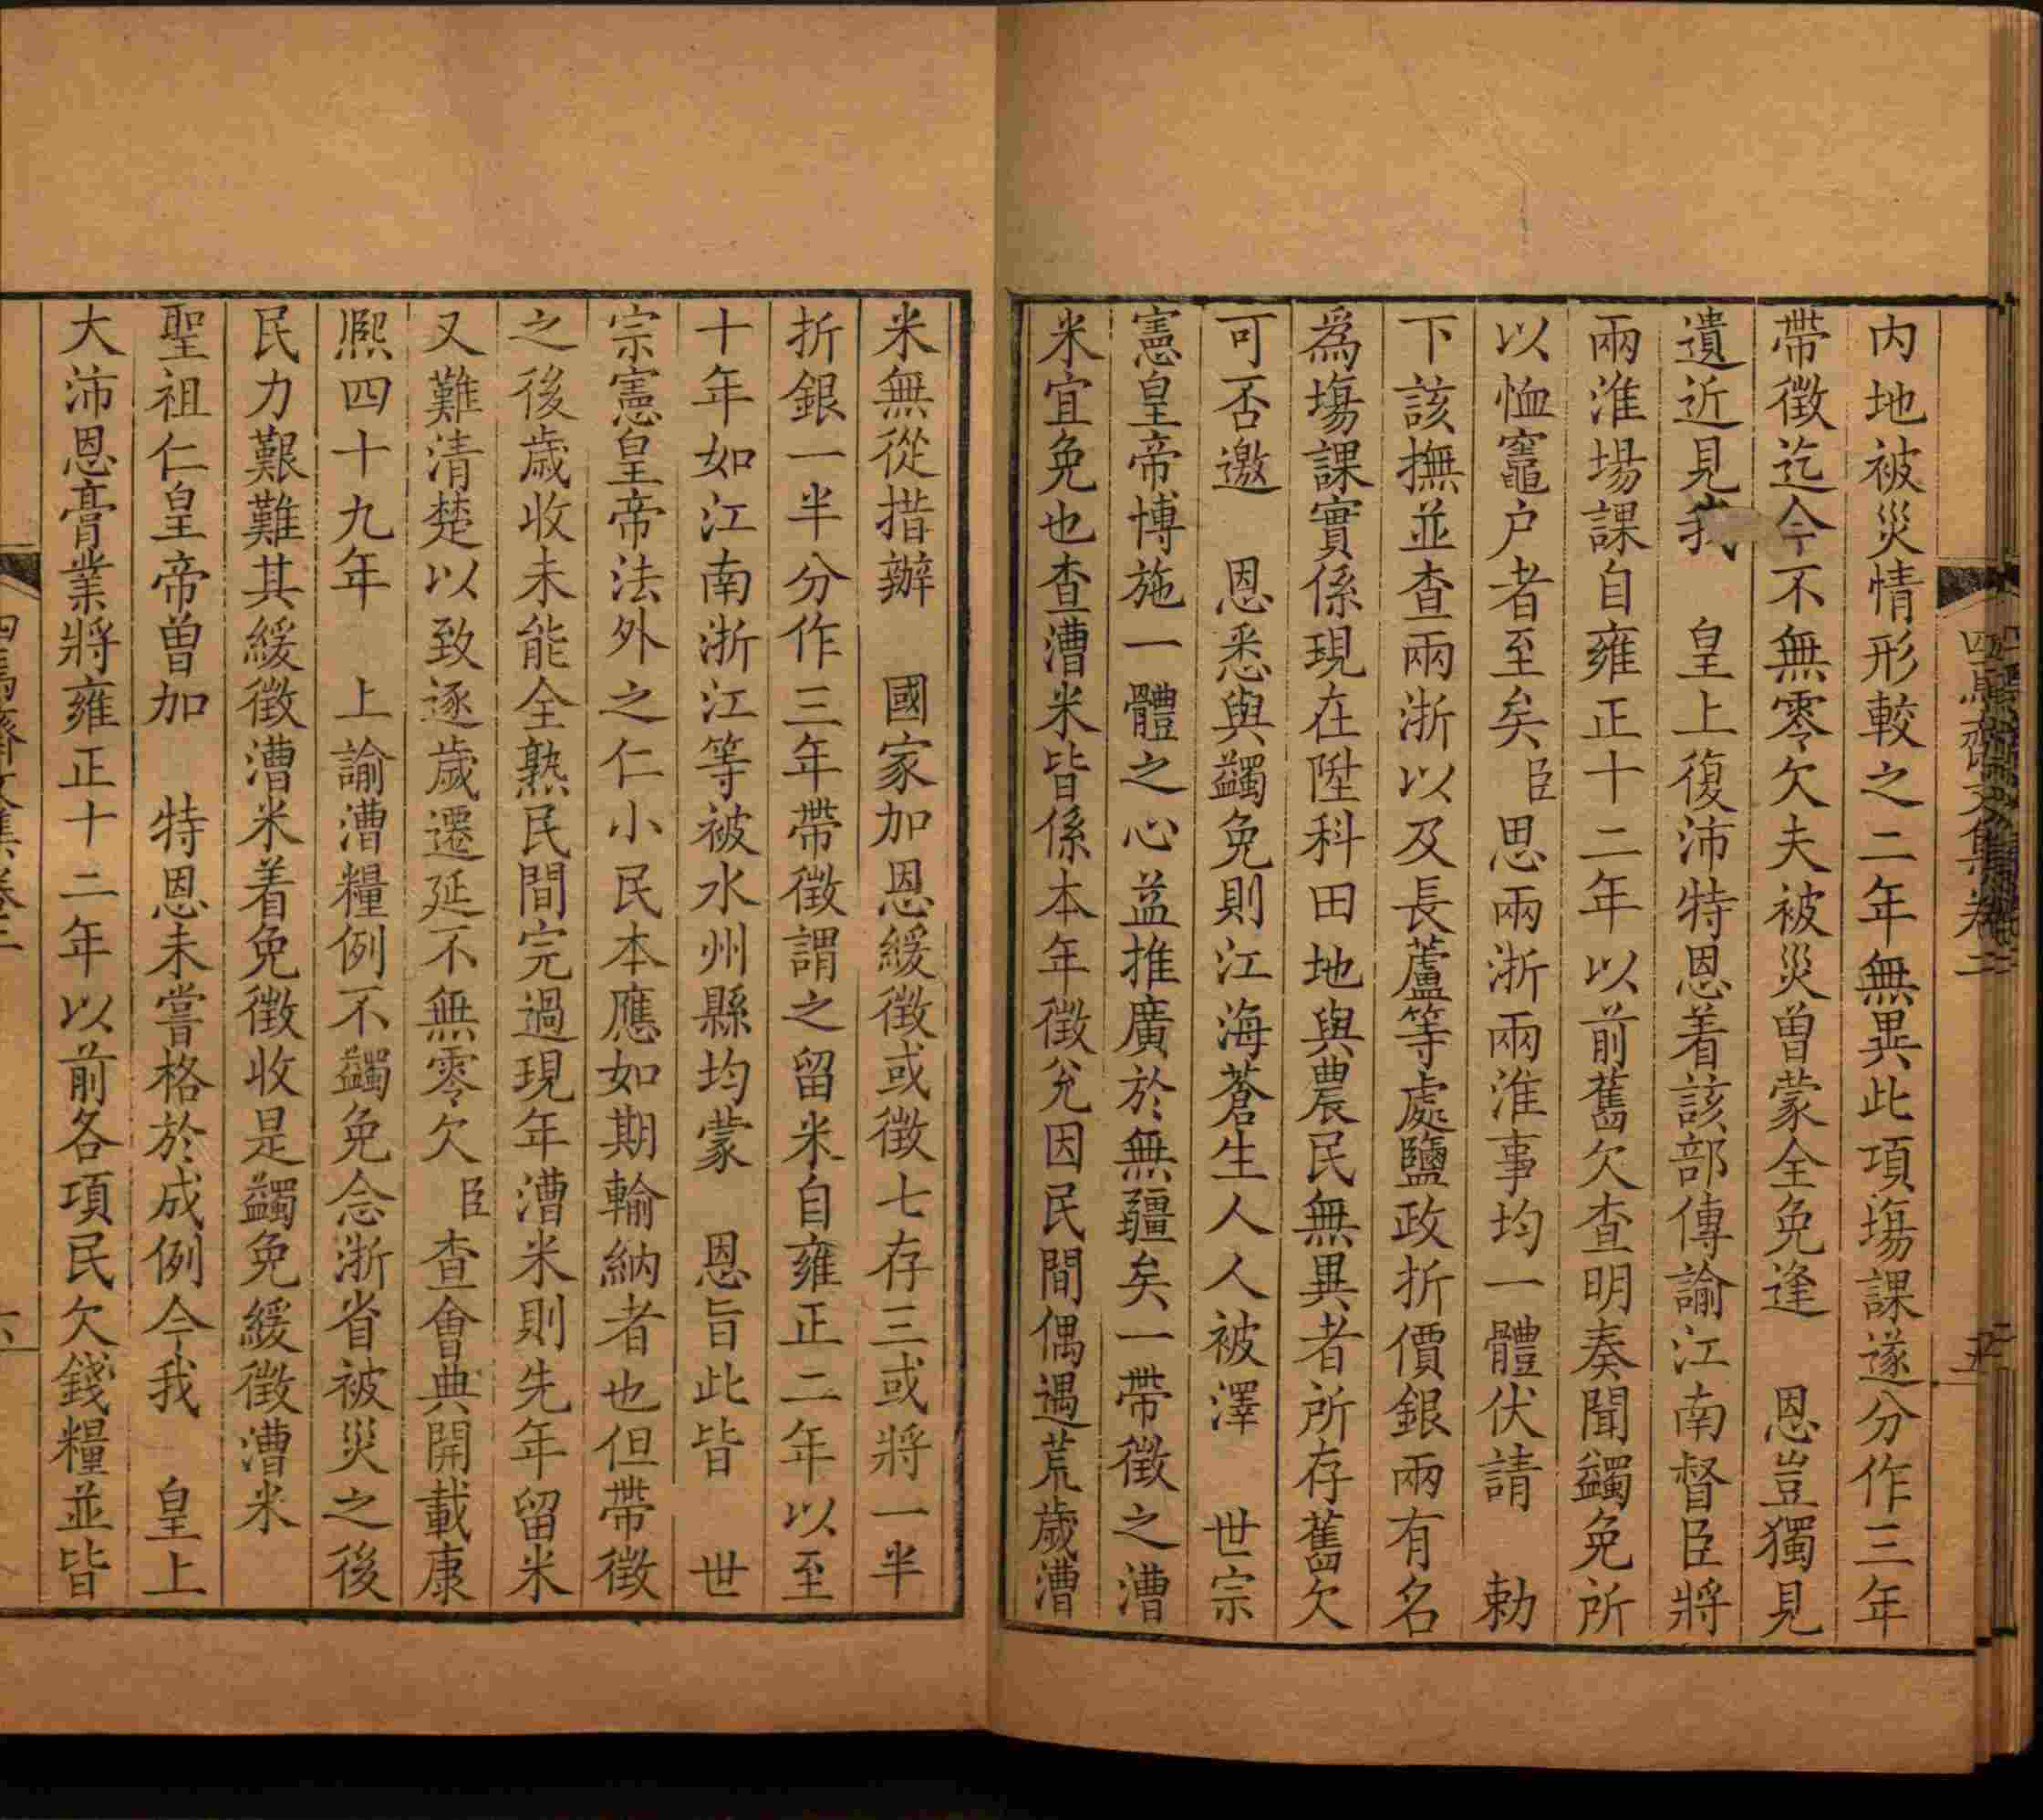 內地被災情形較之二年無異此項塲課遂分作三年
帶徵迄今不無零欠夫被災曾蒙全免逢　恩豈獨見
遺近見我　皇上復沛特恩着該部傳諭江南督臣將
兩淮場課自雍正十二年以前舊欠查明奏聞蠲免所
以恤竈户者至矣臣思兩浙兩淮事均一體伏請　勅
下該撫並查兩浙以及長蘆等處鹽政折價銀兩有名
為塲課實係現在陞科田地與農民無異者所存舊欠
可否邀　恩悉與蠲免則江海蒼生人人被澤　世宗
憲皇帝博施一體之心益推廣於無疆矣一帶徵之漕
米宜免也查漕米皆係本年徵兌因民間偶遇荒歲漕
米無從措辦　國家加恩緩徵或徵七存三或將一半
折銀一半分作三年帶徵謂之留米自雍正二年以至
十年如江南浙江等被水州縣均蒙　恩旨此皆　世
宗憲皇帝法外之仁小民本應如期輸納者也但帶徵
之後歲收未能全熟民間完過現年漕米則先年留米
又難清楚以致逐歲遷延不無零欠臣查會典開載康
熙四十九年　上諭漕糧例不蠲免念浙省被災之後
民力艱難其緩徵漕米着免徵收是蠲免緩徵漕米
聖祖仁皇帝曾加　特恩未嘗格於成例今我　皇上
大沛恩膏業將雍正十二年以前各項民欠錢糧並皆